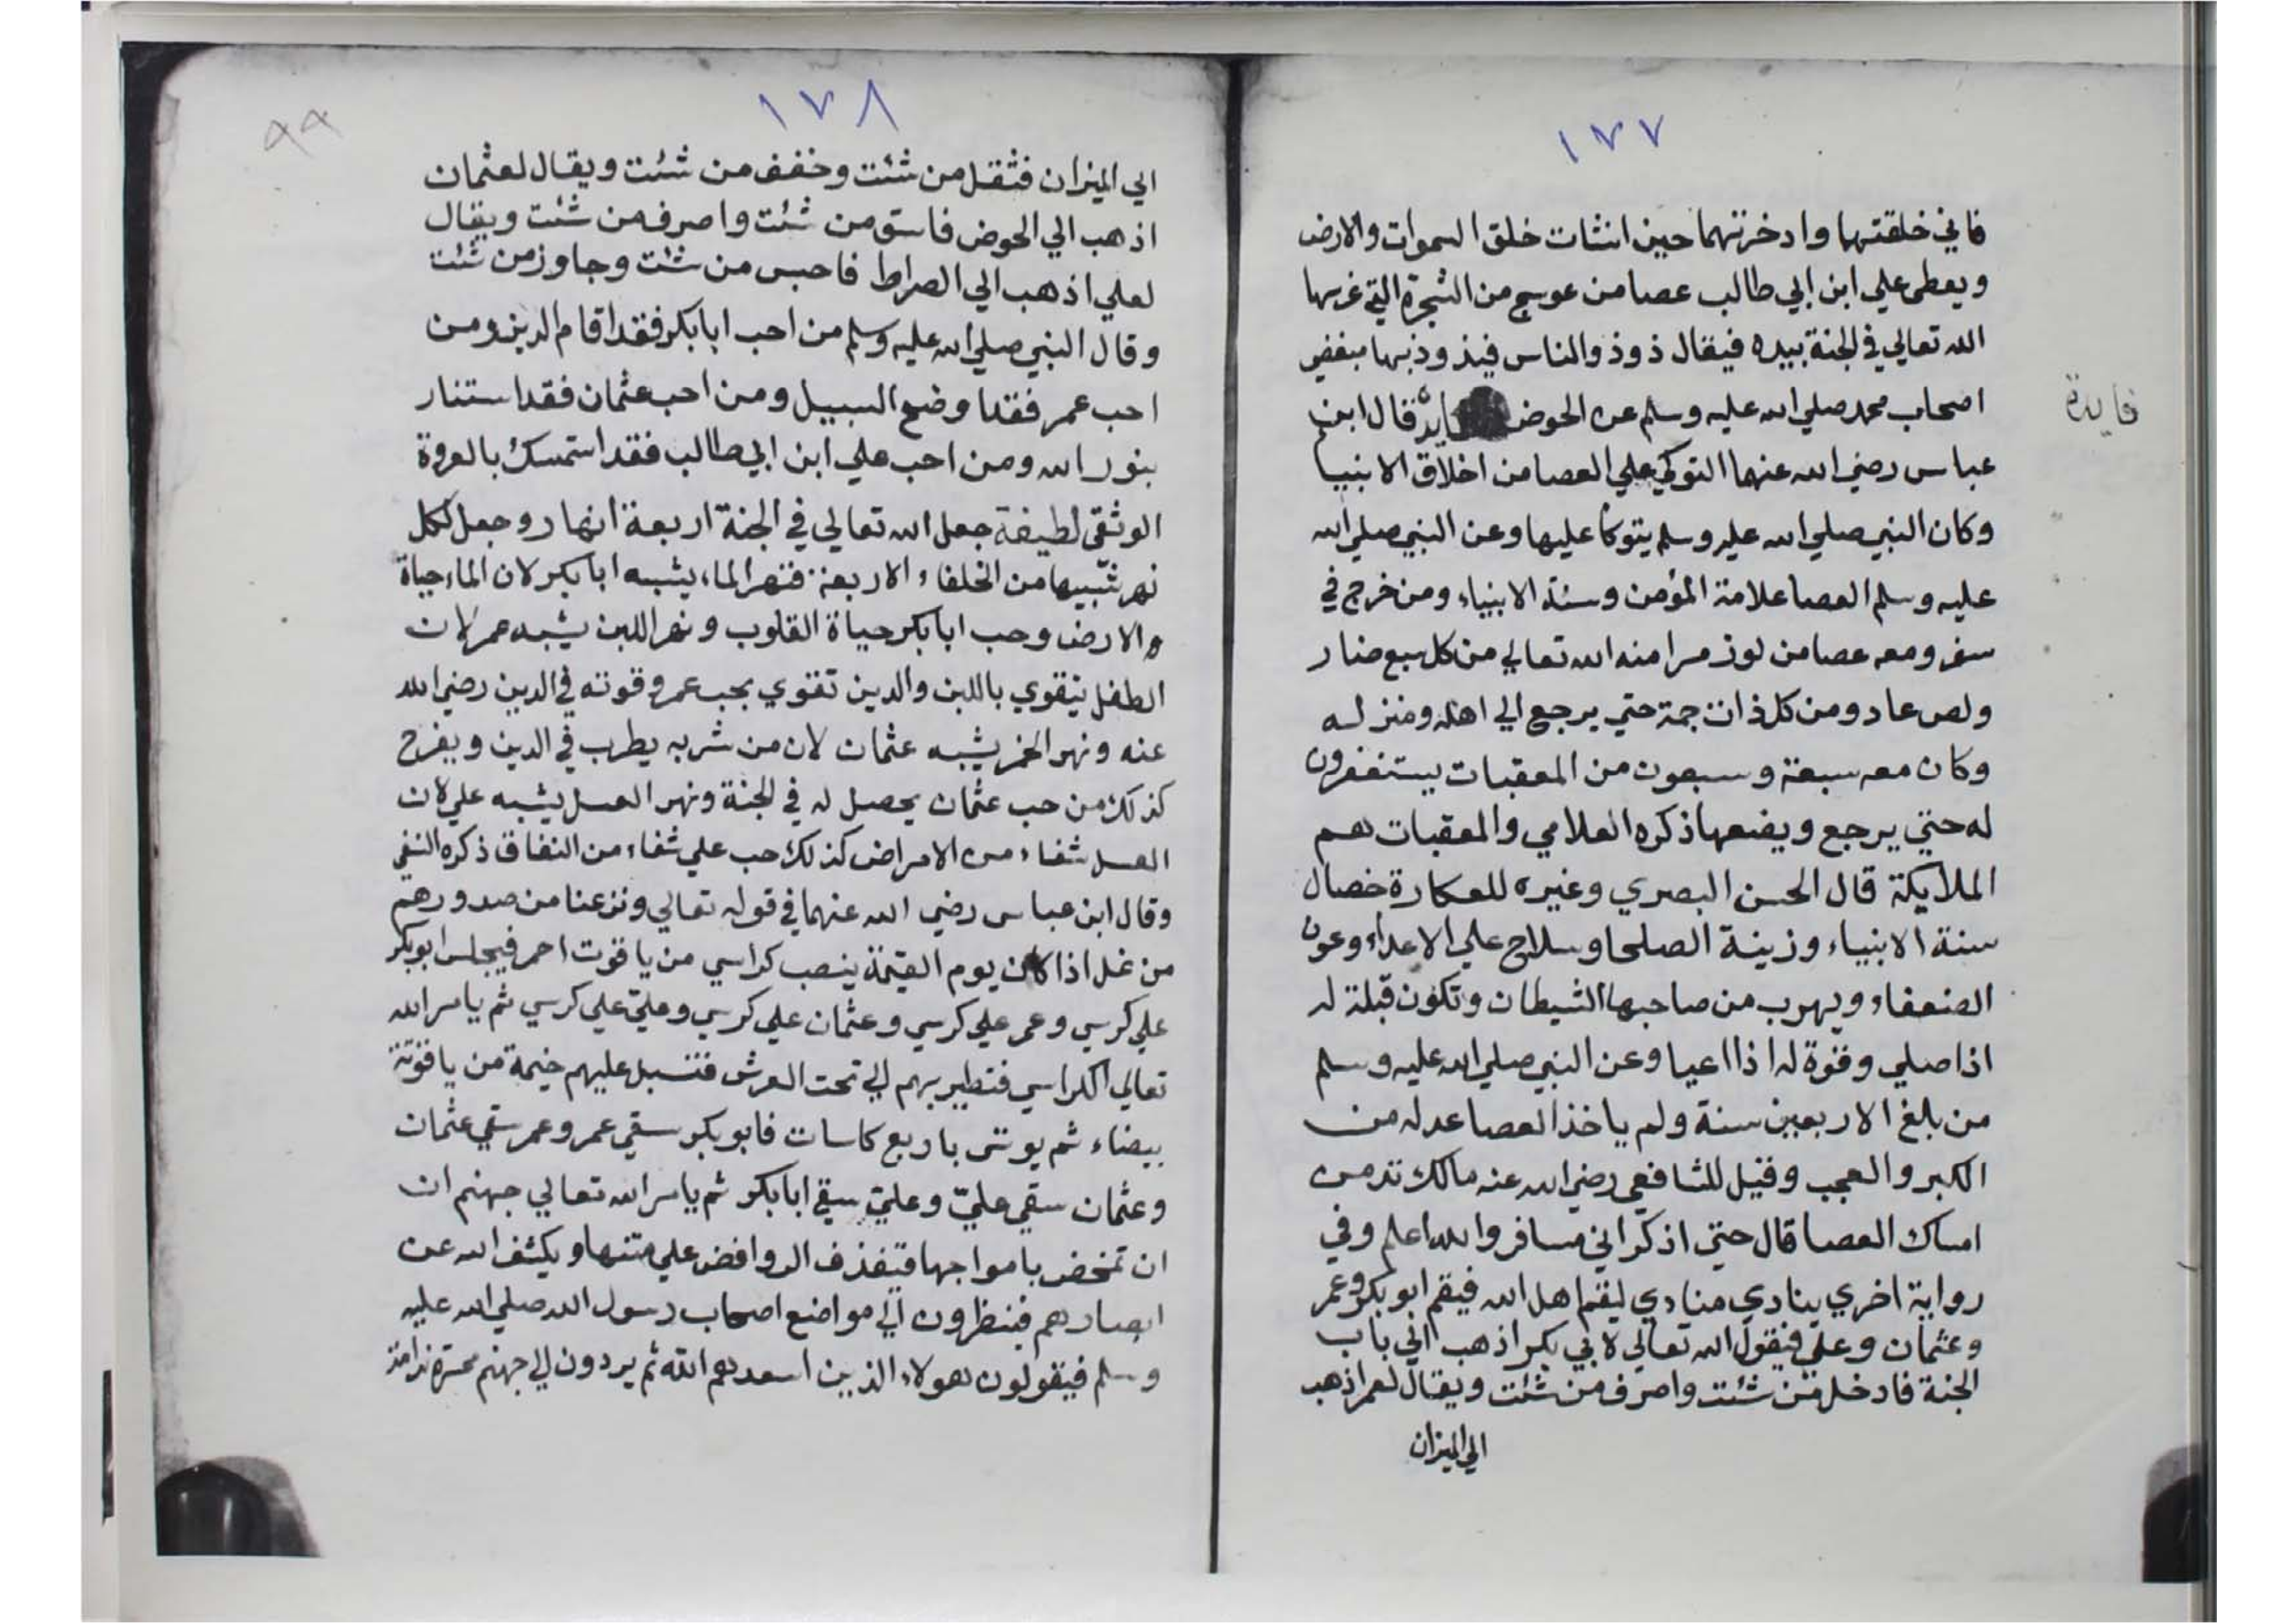 ١٧٧
فاني خلقتهما وادخرتهما حين انشات خلق السموات والارض
ويعطى علي ابن ابي طالب عصا من عوسج من الشجرة التي غرسها
الله تعالي في الجنة بيده فيقال ذوذ والناس فيذوذ بها مبغضي
اصحاب محمد صلي الله عليه وسلم عن الحوض فايدة قال ابن
فايدة
عباس رضي الله عنهما التوكي علي العصا من اخلاق الانبيا
وكان النبي صلي الله عليه وسلم يتوكا عليها وعن النبي صلي الله
عليه وسلم العصا علامة المؤمن وسنة الانبياء ومن خرج في
سفر ومعه عصا من لوز مر امنه الله تعالي من كل سبع ضار
ولص عاد ومن كل ذات حمة حتي يرجع الي اهله ومنزله
وكان معه سبعة وسبعون من المعقبات يستغفرون
له حتي يرجع ويضعها ذكره العلامي والمعقبات هم
الملايكة قال الحسن البصري وغيره للعكارة خصال
سنة الانبياء وزينة الصلحا وسلاح علي الاعداء وعون
الضعفاء ويهرب من صاحبها الشيطان وتكون قبلة له
اذا صلي وقوة له اذا اعيا وعن النبي صلي الله عليه وسلم
من بلغ الاربعين سنة ولم ياخذ العصا عد له من
الكبر والعجب وقيل للشافعي رضي الله عنه مالك تدمن
امساك العصا قال حتي اذكر اني مسافر والله اعلم وفي
رواية اخري ينادي منادي ليقم اهل الله فيقم ابو بكر وعمر
وعثمان وعلي فيقول الله تعالي لابي بكر اذهب الي باب
الجنة فادخل من شئت واصرف من شئت ويقال لعمر اذهب
الي الميزان
١٧٨
٩٩
الي الميزان فثقل من شئت وخفف من شئت ويقال لعثمان
اذهب الي الحوض فاسق من شئت واصرف من شئت ويقال
لعلي اذهب الي الصراط فاحبس من شئت وجاوز من شئت
وقال النبي صلي الله عليه وسلم من احب ابا بكر فقد اقام الدين ومن
احب عمر فقد اوضح السبيل ومن احب عثمان فقد استنار
بنور الله ومن احب علي ابن ابي طالب فقد استمسك بالعروة
الوثقى لطيفة جعل الله تعالي في الجنة اربعة انهار وجعل لكل
نهر شبيها من الخلفاء الاربعة فنهر الماء يشبه ابا بكر لان الماء حياة
والارض وحب ابا بكر حياة القلوب ونهر اللبن يشبه عمر لان
الطفل يتقوي باللبن والدين تقوي بحب عمر وقوته في الدين رضي الله
عنه ونهر الخمر يشبه عثمان لان من شربه يطرب في الدين ويفرح
كذلك من حب عثمان يحصل له في الجنة ونهر العسل يشبه علي لان
العسل شفاء من الامراض كذلك حب علي شفاء من النفاق ذكره النسفي
وقال ابن عباس رضي الله عنهما في قوله تعالي ونزعنا من صدورهم
من غل اذا كان يوم القيمة ينصب كراسي من ياقوت احمر فيجلس ابو بكر
علي كرسي وعمر علي كرسي وعثمان علي كرسي وعليّ علي كرسي ثم يامر الله
تعالي الكراسي فتطير بهم الي تحت العرش فتسبل عليهم خيمة من ياقوتة
بيضاء ثم يوتى باربع كاسات فابو بكر سقي عمر وعمر سقي عثمان
وعثمان سقي عليّ وعليّ سقي ابا بكر ثم يامر الله تعالي جهنم ان
ان تمخض بامواجها فتقذف الروافض علي متنها ويكشف الله عن
ابصارهم فينظرون الي مواضع اصحاب رسول الله صلي الله عليه
وسلم فيقولون هولاء الذين اسعدهم الله ثم يردون الي جهنم